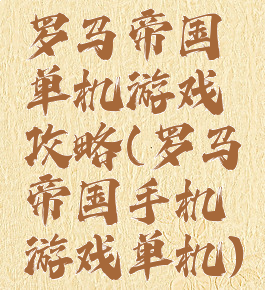 罗马帝国
单机游戏
攻略(罗马
帝国手机
游戏单机)